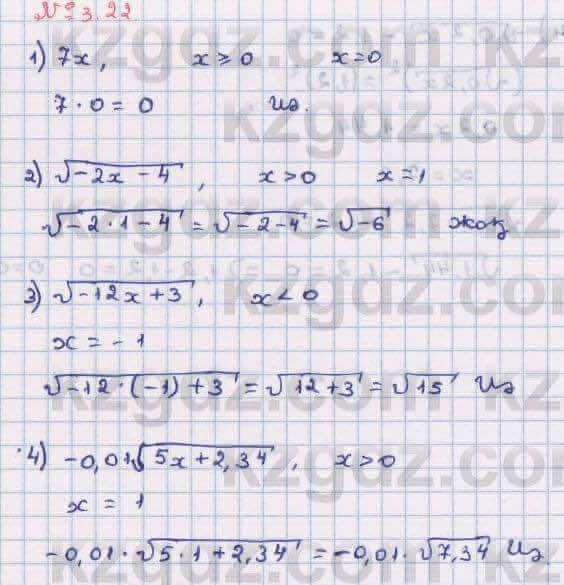 № 3.22
1) 7x, x ≥ 0 x = 0
7 · 0 = 0 Иә.
2) √(-2x - 4), x > 0 x = 1
√(-2 · 1 - 4) = √(-2 - 4) = √(-6) жоқ
3) √(-12x + 3), x < 0
x = -1
√(-12 · (-1) + 3) = √(12 + 3) = √15 Иә
4) -0,01√(5x + 2,34), x > 0
x = 1
-0,01 · √(5 · 1 + 2,34) = -0,01 · √7,34 Иә.
kzgdz.com